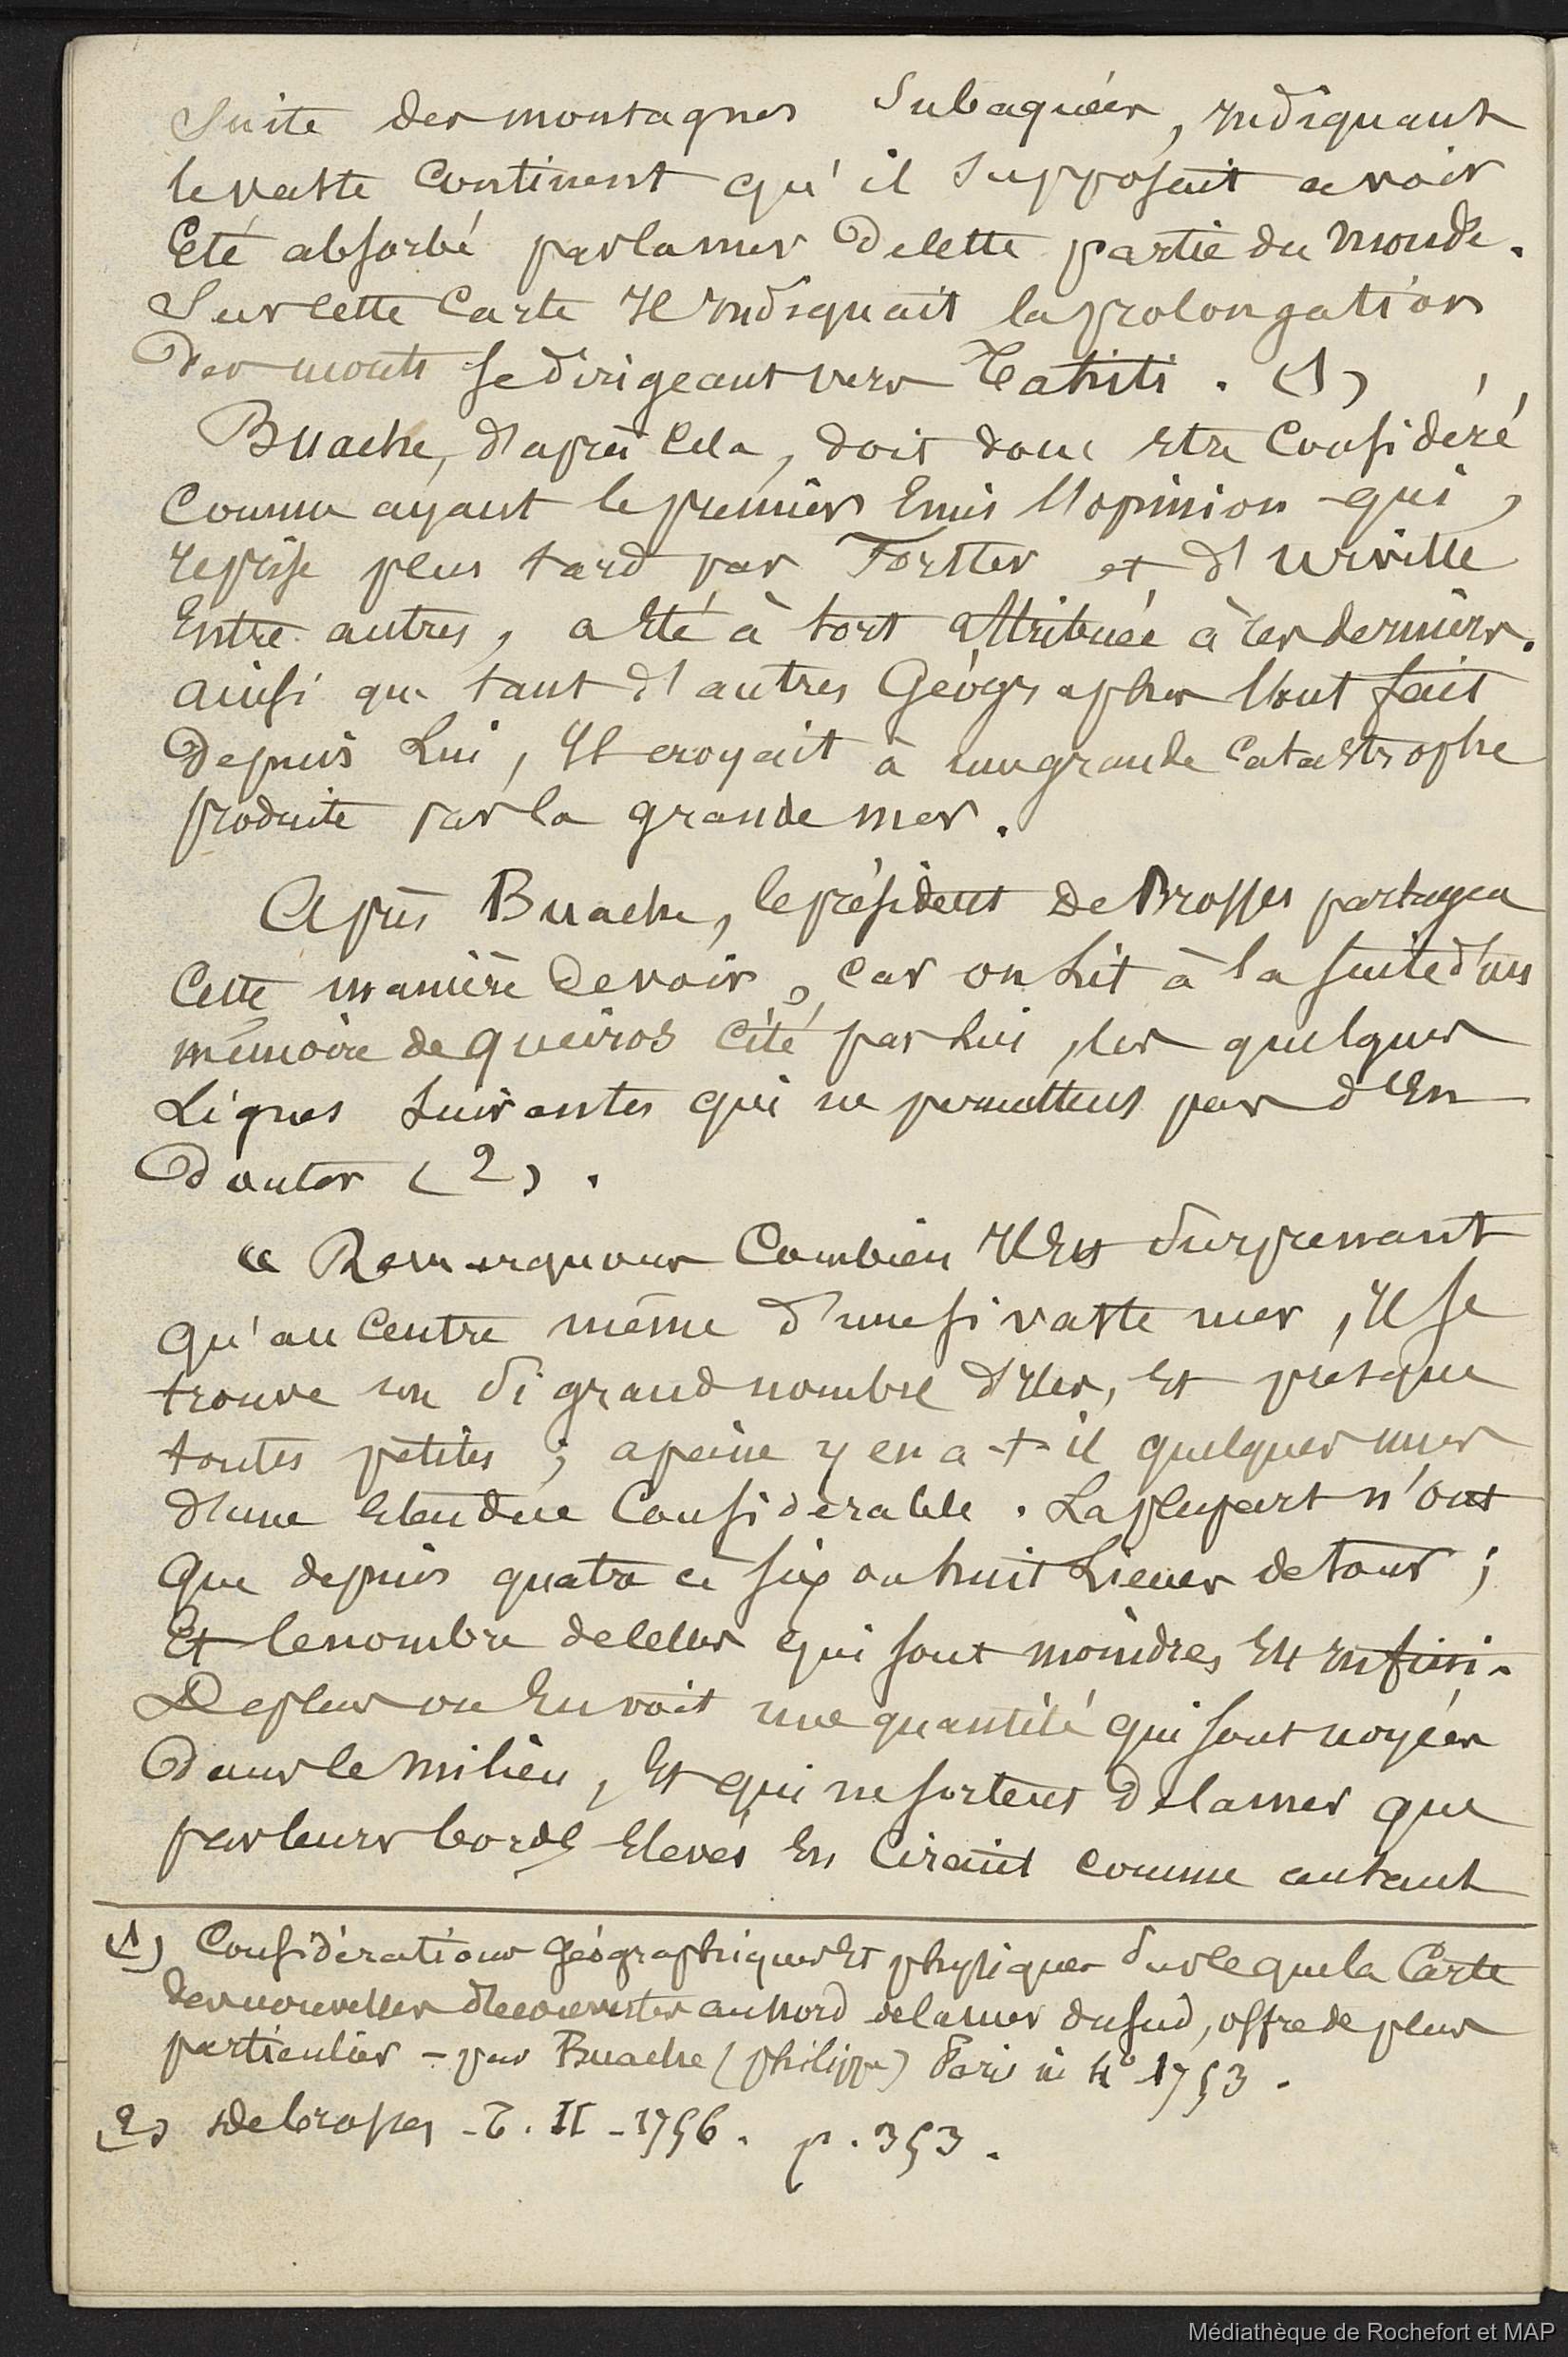 Suite des montagnes Subaquées, Indiquant
le vaste Continent qu'il Supposait avoir
Eté absorbé par la mer De cette partie du monde.
Sur cette Carte Il Indiquait la prolongation
Des monts se dirigeant vers Tahiti. (1)
Buache, d'après Cela, doit donc Etre Considéré
Comme ayant le premier Emis l'opinion qui,
reprise plus tard par Forster et d'Urville
Entre autres, a Eté à tort attribuée à ces derniers.
Ainsi que tant d'autres Géographes l'ont fait
Depuis Lui, Il croyait à une grande Catastrophe
produite par la grande mer.
Après Buache, le président De Brosses partagea
Cette manière De voir, car on Lit à la suite d'un
mémoire de Queiros Cité par Lui, les quelques
Lignes Suivantes qui ne permettent pas d'En
Douter (2).
« Remarquons Combien Il Est Surprenant
qu'au Centre même d'une si vaste mer, Il se
trouve un Si grand nombre d'Iles, Et presque
toutes petites ; a peine y en a-t-il quelques unes
d'une Etendue Considerable. La plupart n'ont
que depuis quatre à six ou huit Lieues de tour ;
Et le nombre de celles qui sont moindres Est Infini.
De plus on En voit une quantité qui sont noyées
Dans le milieu, Et qui ne sortent De la mer que
par leurs bords Elevés En Circuit comme autant
(1) Considérations Géographiques Et physiques Sur le que la Carte
des nouvelles decouvertes au Nord de la mer du sud, offre de plus
particulier - par Buache (philippe) Paris in 4° 1753.
(2) de brosses - T. II - 1756. p. 353.
Médiathèque de Rochefort et MAP